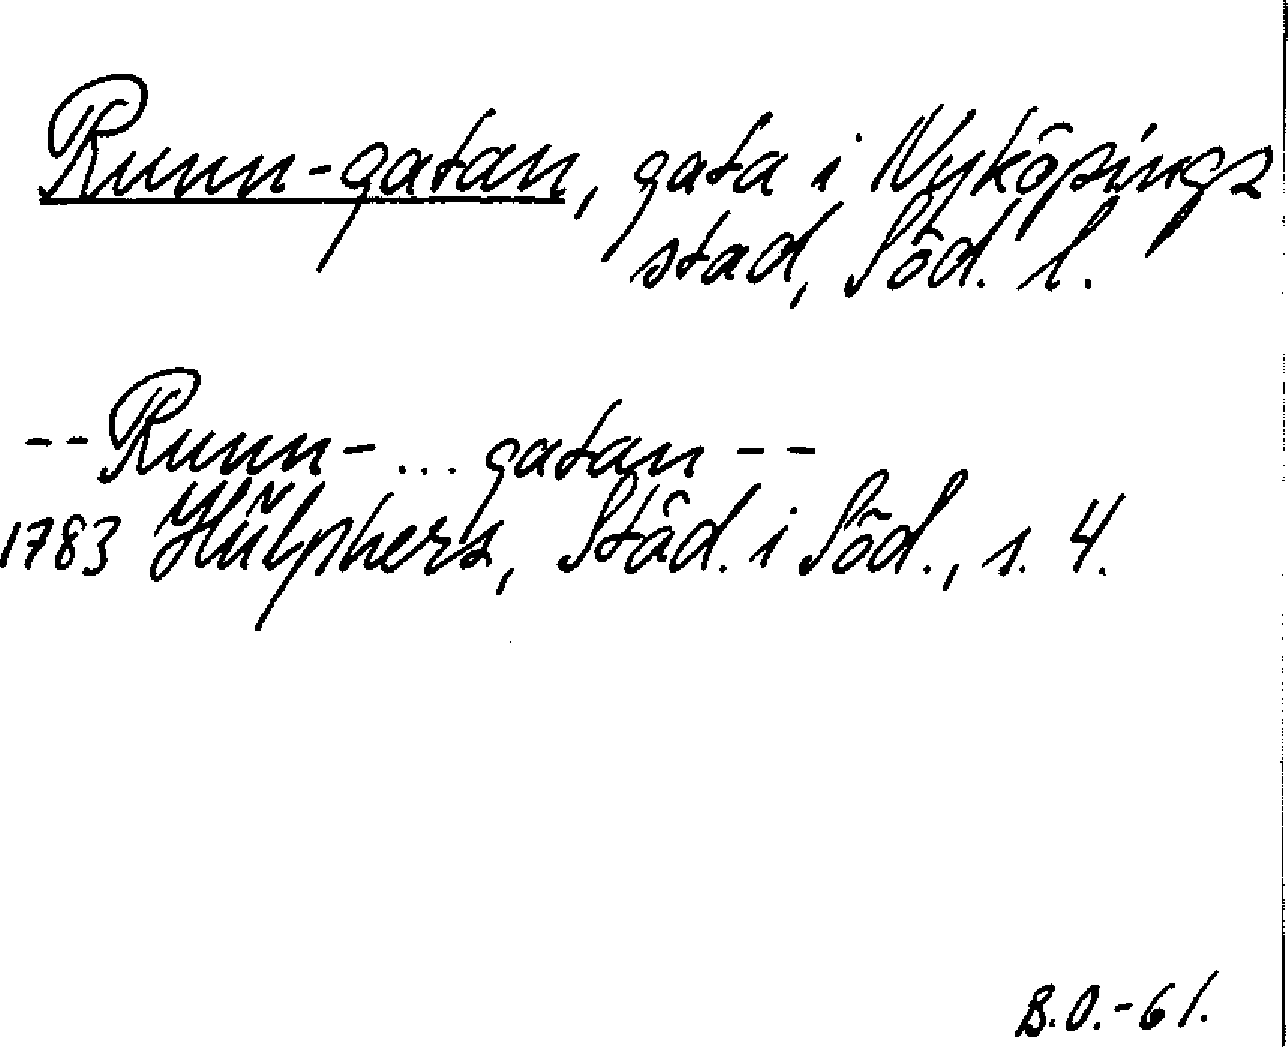 Runn-gatan, gata i Nyköpings
stad, Söd. l.
--Runn-... gatan --
1783 Hülphers, Städ. i Söd., s. 4.
B.O.-61.